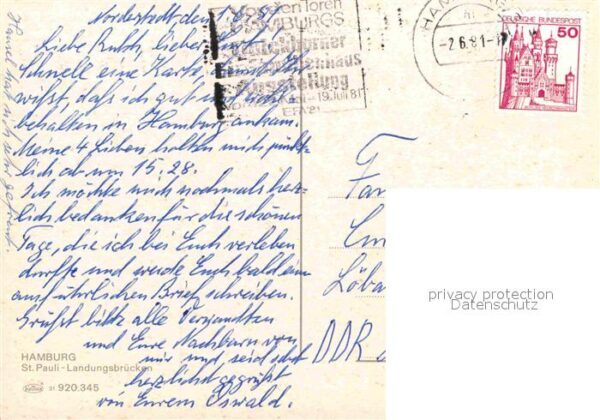 Norderstedt, den
Liebe Ruth, lieber
Schnell eine Karte, damit Ihr
wißt, daß ich gut und
behalten in Hamburg ankam.
Meine 4 Lieben holten mich pünkt-
lich ab um 15.28.
Ich möchte mich nochmals herz-
lich bedanken für die schönen
Tage, die ich bei Euch verleben
durfte und werde Euch bald ein
ausführlichen Brief schreiben.
Grüßt bitte alle Verwandten
und Eure Nachbarn von
mir und seid
herzlichst gegrüßt
von Eurem Oswald.
Hansel hat sich sehr gefreut.
Vor den Toren
HAMBURGS
Ausstellung
- 19. Juli 81
HAM
-2.6.81-
DEUTSCHE BUNDESPOST
50
Fa
Löba
DDR
privacy protection
Datenschutz
HAMBURG
St. Pauli - Landungsbrücken
21 920.345